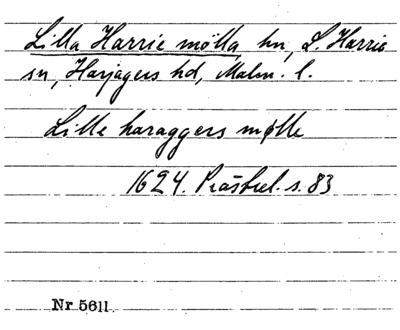 Lilla Harrie mölla hn, L. Harrie
sn, Harjagers hd, Malm. l.
Lille haraggers mølle
1624. Prästrel. s. 83
Nr 5611.